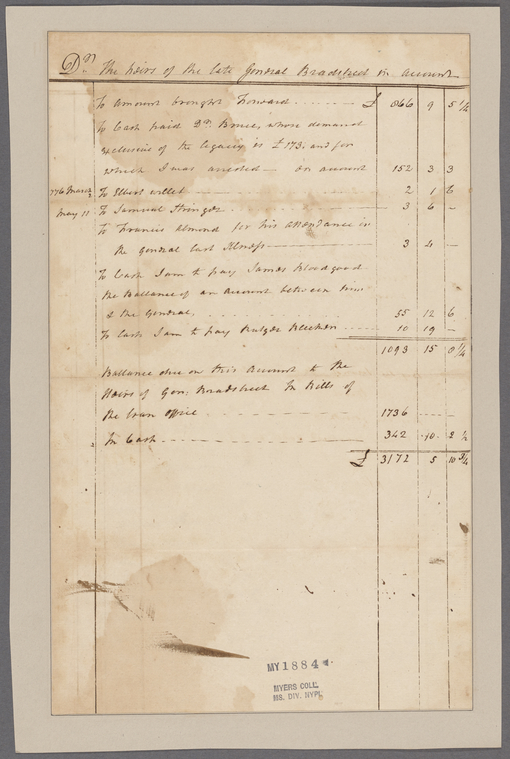 Dr. The heirs of the late General Bradstreet in Account
To amount brought Forward £ 866 9 5 1/2
To Cash paid Dr. Bruce, whose demand
exclusive of the legacy is £173, and for
which I was arrested — on account 152 3 3
1776 March 2 To Elbert Willet 2 1 6
May 11 To Samuel Stringer 3 6 —
To Francis Almond for his attendance in
the general last Illness 3 4 —
To Cash I am to pay James Bloodgood
the Ballance of an Account between him
& the General 55 12 6
To Cash I am to pay Rutger Bleeker 10 19 —
1093 15 0 1/4
Ballance due on this Account to the
Heirs of Gen: Bradstreet In Bills of
the Loan office 1736
In Cash 342 10 2 1/2
£ 3172 5 10 3/4
MY 1884
MYERS COLL.
MS. DIV. NYPL